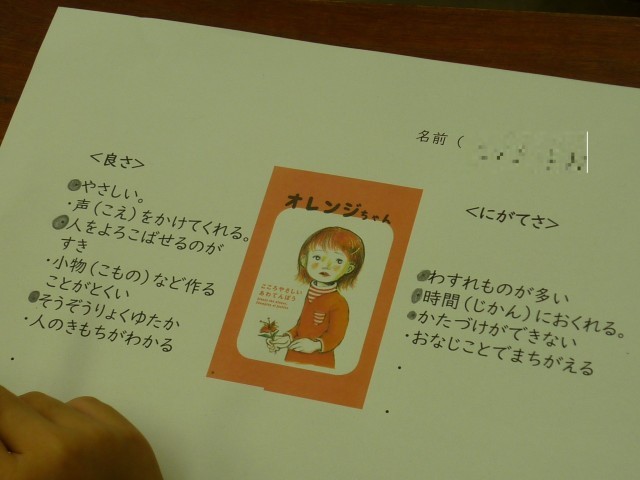 名前（
＜良さ＞
・やさしい。
・声（こえ）をかけてくれる。
・人をよろこばせるのが
すき
・小物（こもの）など作る
ことがとくい
・そうぞうりょくゆたか
・人のきもちがわかる
オレンジちゃん
こころやさしい
あわてんぼう
＜にがてさ＞
・わすれものが多い
・時間（じかん）におくれる。
・かたづけができない
・おなじことでまちがえる